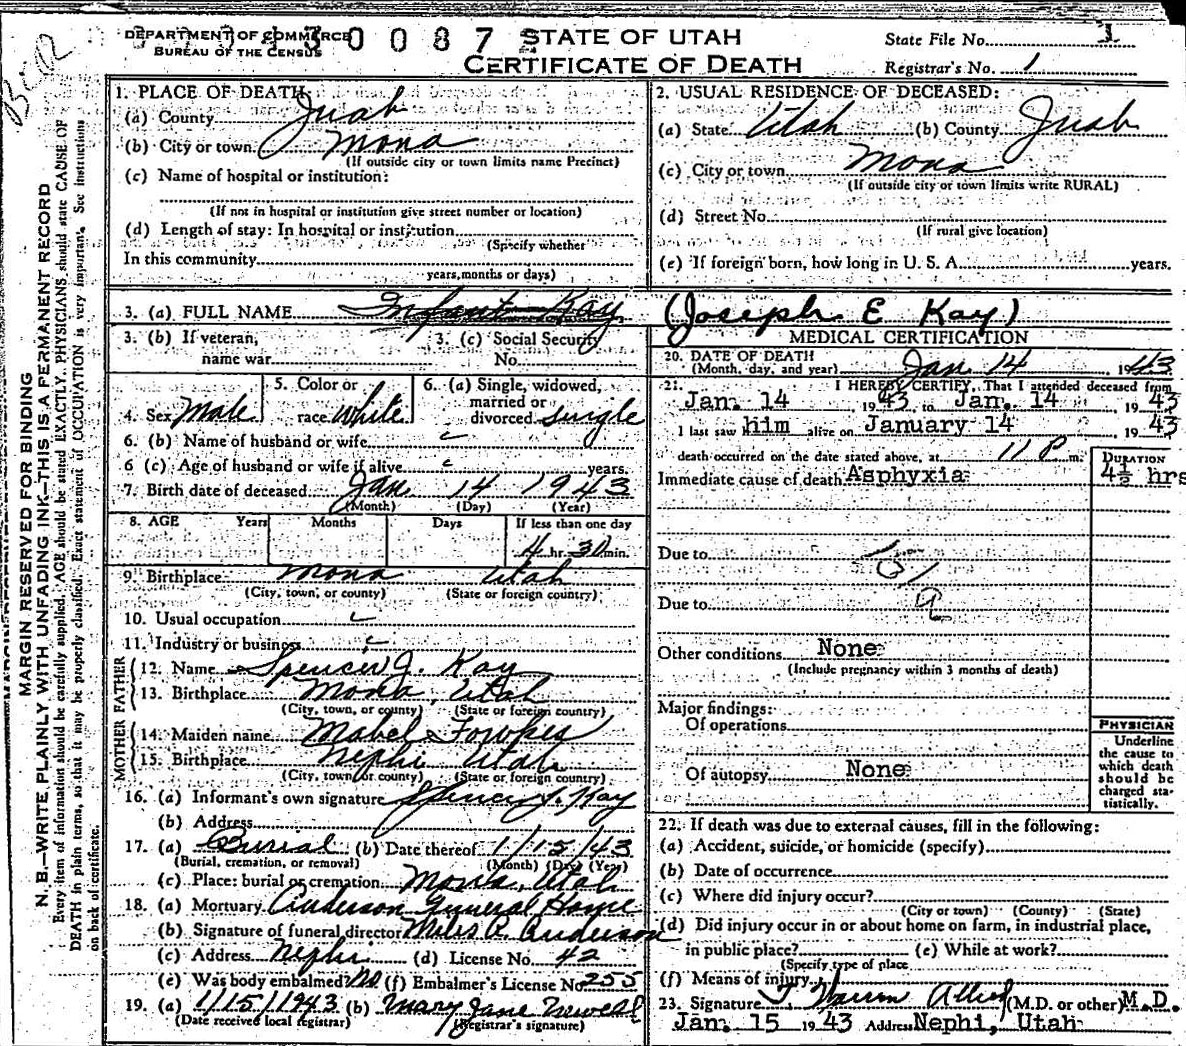 DEPARTMENT OF COMMERCE
BUREAU OF THE CENSUS
3 0 0 8 7
STATE OF UTAH
CERTIFICATE OF DEATH
State File No. 1
Registrar's No. 1
MARGIN RESERVED FOR BINDING
N. B.—WRITE PLAINLY WITH UNFADING INK—THIS IS A PERMANENT RECORD
Every item of information should be carefully supplied. AGE should be stated EXACTLY. PHYSICIANS should state CAUSE OF
DEATH in plain terms, so that it may be properly classified. Exact statement of OCCUPATION is very important. See instructions
on back of certificate.
1. PLACE OF DEATH:
(a) County Juab
(b) City or town Mona
(If outside city or town limits name Precinct)
(c) Name of hospital or institution:
(If not in hospital or institution give street number or location)
(d) Length of stay: In hospital or institution
(Specify whether
In this community
years, months or days)
2. USUAL RESIDENCE OF DECEASED:
(a) State Utah (b) County Juab
(c) City or town Mona
(If outside city or town limits write RURAL)
(d) Street No.
(If rural give location)
(e) If foreign born, how long in U. S. A. years.
3. (a) FULL NAME Infant Kay (Joseph E Kay)
3. (b) If veteran,
name war
3. (c) Social Security
No.
4. Sex Male
5. Color or
race White
6. (a) Single, widowed,
married or
divorced single
6. (b) Name of husband or wife
6 (c) Age of husband or wife if alive years.
7. Birth date of deceased Jan 14 1943
(Month) (Day) (Year)
8. AGE Years Months Days If less than one day
4 hr. 30 min.
9. Birthplace Mona Utah
(City, town, or county) (State or foreign country)
10. Usual occupation
11. Industry or business
FATHER
12. Name Spencer J. Kay
13. Birthplace Mona, Utah
(City, town, or county) (State or foreign country)
MOTHER
14. Maiden name Mabel Fowkes
15. Birthplace Nephi Utah
(City, town or county) (State or foreign country)
16. (a) Informant's own signature Spencer J. Kay
(b) Address
17. (a) Burial (b) Date thereof 1/15/43
(Burial, cremation, or removal) (Month) (Day) (Year)
(c) Place: burial or cremation Mona, Utah
18. (a) Mortuary Anderson Funeral Home
(b) Signature of funeral director Miles R. Anderson
(c) Address Nephi (d) License No. 42
(e) Was body embalmed? No (f) Embalmer's License No 255
19. (a) 1/15/1943 (b) Mary Jane Newell
(Date received local registrar) (Registrar's signature)
MEDICAL CERTIFICATION
20. DATE OF DEATH
(Month, day, and year) Jan 14 1943
21. I HEREBY CERTIFY, That I attended deceased from
Jan. 14, 1943 to Jan. 14, 1943
I last saw him alive on January 14 1943
death occurred on the date stated above, at 11 P m.
DURATION
Immediate cause of death Asphyxia 4½ hrs
Due to
Due to
Other conditions None
(Include pregnancy within 3 months of death)
Major findings:
Of operations
Of autopsy None
PHYSICIAN
Underline
the cause to
which death
should be
charged sta-
tistically.
22. If death was due to external causes, fill in the following:
(a) Accident, suicide, or homicide (specify)
(b) Date of occurrence
(c) Where did injury occur?
(City or town) (County) (State)
(d) Did injury occur in or about home on farm, in industrial place,
in public place? (e) While at work?
(Specify type of place
(f) Means of injury
23. Signature (M.D. or other) M.D.
Jan. 15 1943 Address Nephi, Utah